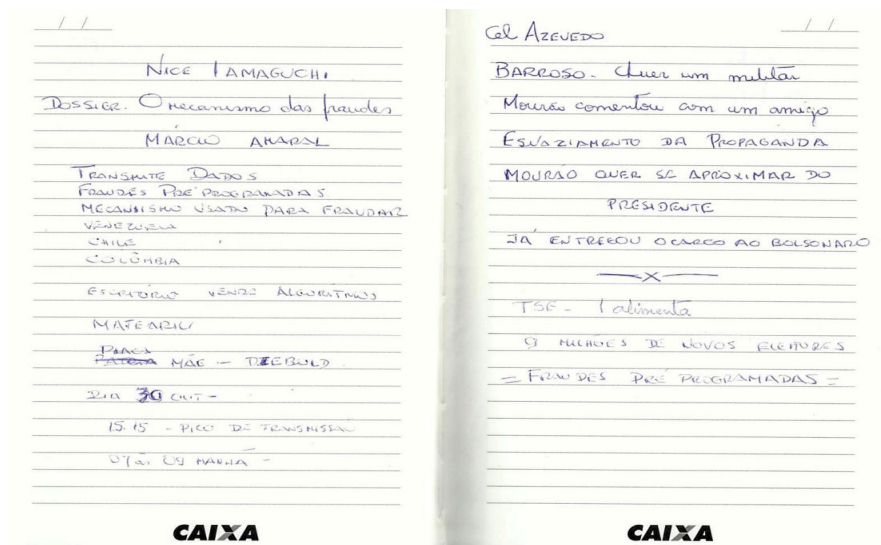 / /
NICE IAMAGUCHI
DOSSIER. O mecanismo das fraudes
MÁRCIO AMARAL
TRANSMITE DADOS
FRAUDES PRÉ PROGRAMADAS
MECANISMO USADO PARA FRAUDAR
VENEZUELA
CHILE
COLÔMBIA
ESCRITÓRIO VENDE ALGORITMOS
PLACA
MÃE - DIEBOLD
DIA 30 OUT -
15.15 - PICO DE TRANSMISSÃO
09 MANHÃ -
CAIXA
/ /
Cel AZEVEDO
BARROSO - Quer um militar
Mourão comentou com um amigo
ESVAZIAMENTO DA PROPAGANDA
MOURÃO QUER SE APROXIMAR DO
PRESIDENTE
JÁ ENTREGOU O CARGO AO BOLSONARO
X
TSE - 1 alimenta
9 MILHÕES DE NOVOS ELEITORES
= FRAUDES PRÉ PROGRAMADAS =
CAIXA